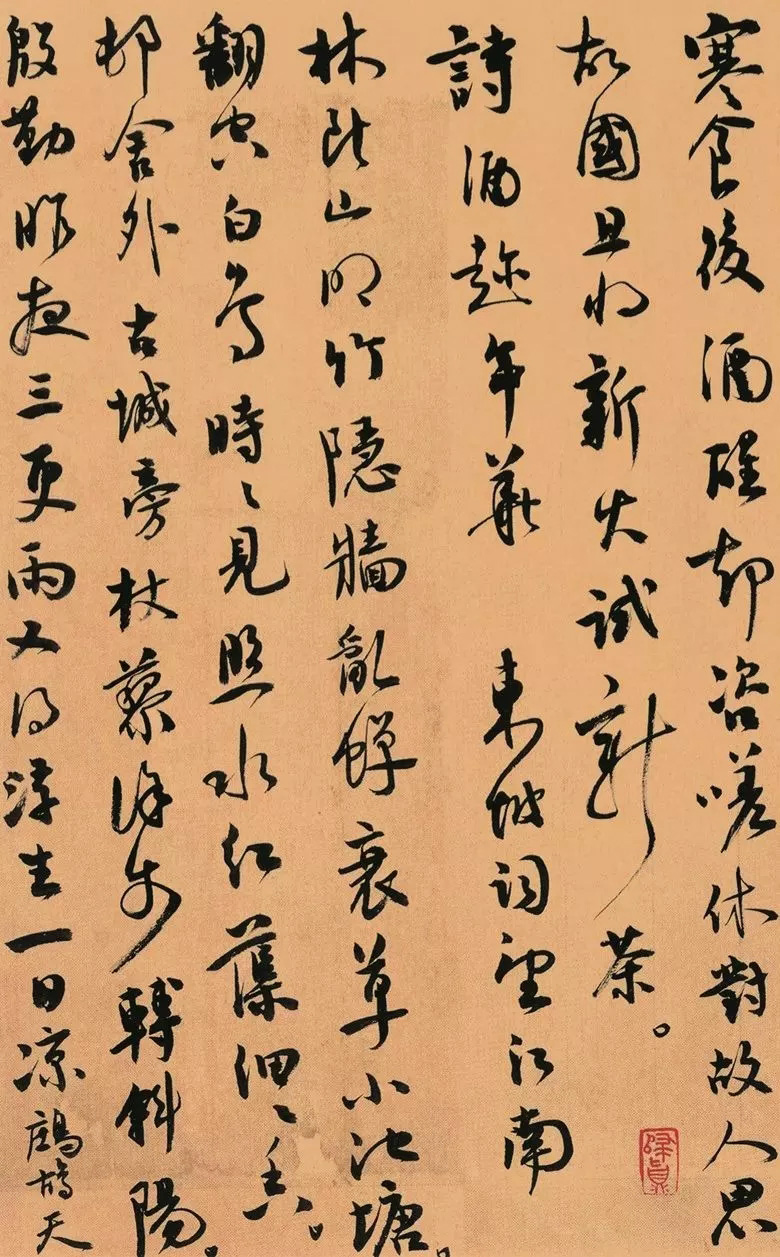 寒食後酒醒却咨嗟休對故人思
故國且將新火試新茶。
詩酒趁年華 東坡詞望江南
林斷山明竹隱牆亂蟬衰草小池塘。
翻空白鳥時〻見照水紅蕖細〻香。
邨舍外古城旁杖藜徐步轉斜陽。
殷勤昨夜三更雨又得浮生一日凉鷓鴣天